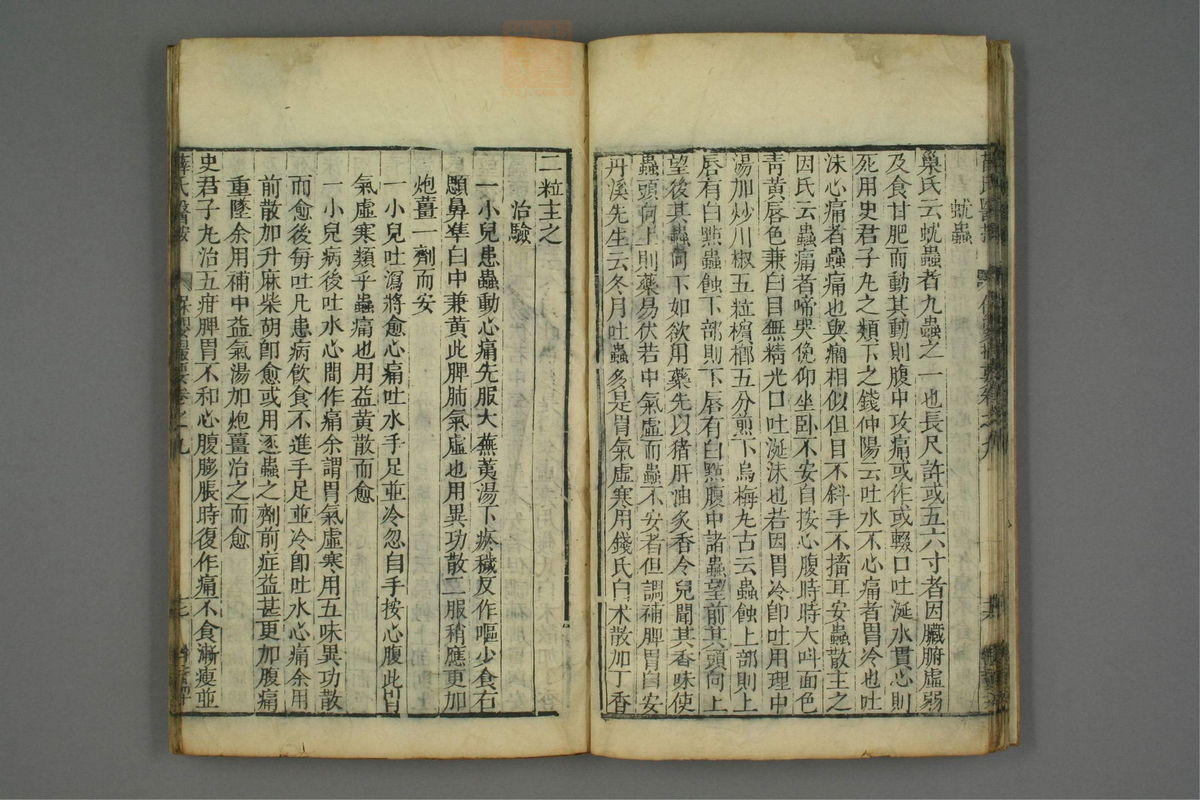 蚘蟲
巢氏云蚘蟲者九蟲之一也長尺許或五六寸者因臟腑虛弱
及食甘肥而動其動則腹中攻痛或作或輟口吐涎水貫心則
死用史君子丸之類下之錢仲陽云吐水不心痛者胃冷也吐
沫心痛者蟲痛也與癇相似但目不斜手不搐耳安蟲散主之
因氏云蟲痛者啼哭俛仰坐卧不安自按心腹時時大叫面色
青黃唇色兼白目無精光口吐涎沫也若因胃冷卽吐用理中
湯加炒川椒五粒檳榔五分煎下烏梅丸古云蟲蝕上部則上
唇有白㸃蟲蝕下部則下唇有白㸃腹中諸蟲望前其頭向上
望後其蟲向下如欲用藥先以猪肝油炙香令兒聞其香味使
蟲頭向上則藥易伏若中氣虛而蟲不安者但調補脾胃自安
丹溪先生云冬月吐蟲多是胃氣虛寒用錢氏白术散加丁香
二粒主之
治驗
一小兒患蟲動心痛先服大蕪荑湯下瘀穢反作嘔少食右
顋鼻準白中兼黃此脾肺氣虛也用異功散二服稍應更加
炮薑一劑而安
一小兒吐瀉將愈心痛吐水手足並冷忽自手按心腹此自
氣虛寒類乎蟲痛也用益黃散而愈
一小兒病後吐水心間作痛余謂胃氣虛寒用五味異功散
而愈後每吐凡患病飲食不進手足並冷卽吐水心痛余用
前散加升麻柴胡卽愈或用逐蟲之劑前症益甚更加腹痛
重墜余用補中益氣湯加炮薑治之而愈
史君子丸治五疳脾胃不和心腹膨脹時復作痛不食漸瘦並
薛氏醫按 保嬰撮要卷之九